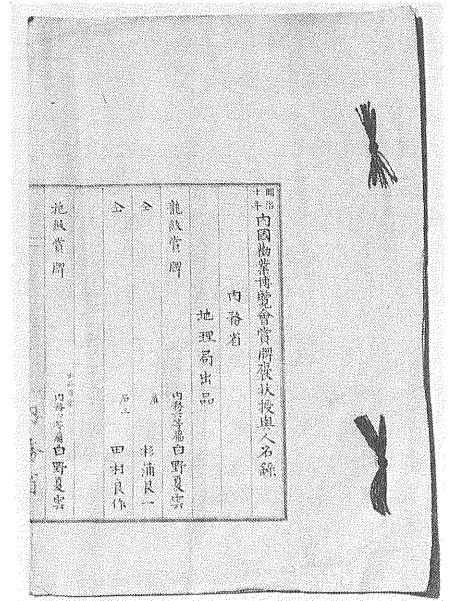 明治十年内國勧業博覧會賞牌褒状授與人名録
内務省
地理局出品
龍紋賞牌 内務六等属白野夏雲
仝 雇 杉浦良一
仝 田村良作
花紋賞牌 内務六等属白野夏雲